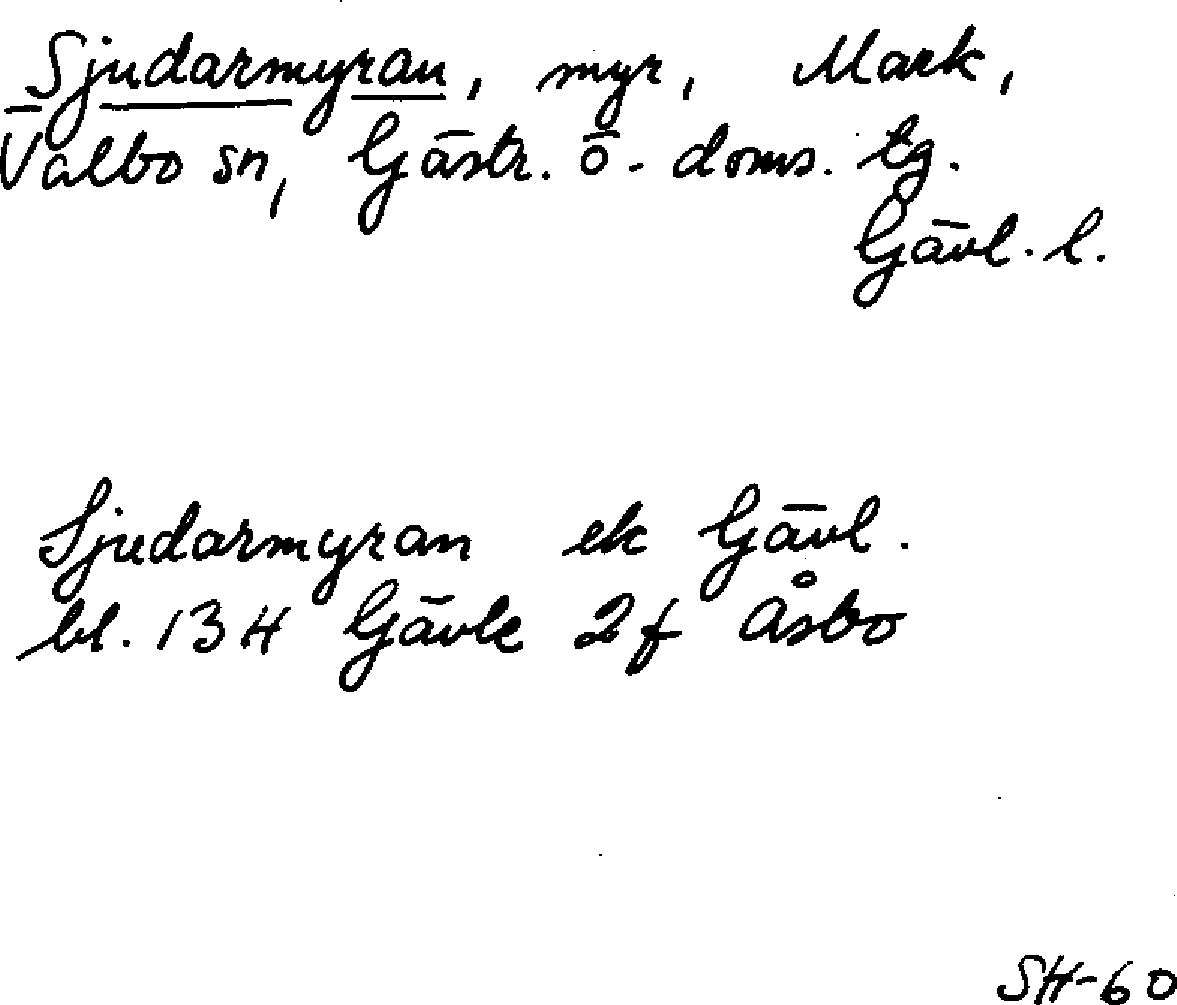 Sjudarmyran, myr, Mark,
Valbo sn, Gästr. ö. doms. tg.
Gävl. l.
Sjudarmyran ek Gävl.
bl. 13H Gävle 2f Åsbo
SH-60